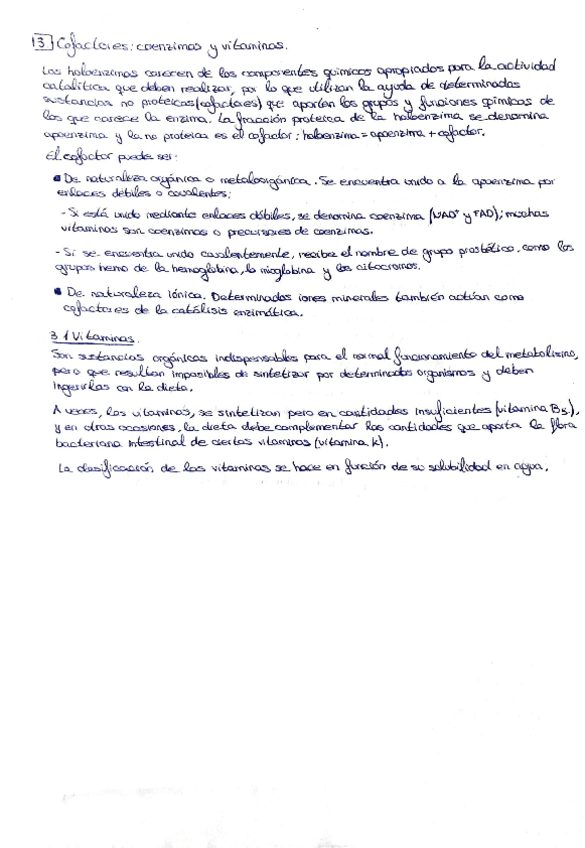 3 Cofactores: coenzimas y vitaminas.
Las holoenzimas carecen de los componentes químicos apropiados para la actividad
catalítica que deben realizar, por lo que utilizan la ayuda de determinadas
sustancias no proteicas (cofactores) que aportan los grupos y funciones químicas de
los que carece la enzima. La fracción proteica de la holoenzima se denomina
apoenzima y la no proteica es el cofactor: holoenzima = apoenzima + cofactor.
El cofactor puede ser:
• De naturaleza orgánica o metaloorgánica. Se encuentra unido a la apoenzima por
enlaces débiles o covalentes:
- Si está unido mediante enlaces débiles, se denomina coenzima (NAD⁺ y FAD); muchas
vitaminas son coenzimas o precursores de coenzimas.
- Si se encuentra unido covalentemente, recibe el nombre de grupo prostético, como los
grupos hemo de la hemoglobina, la mioglobina y los citocromos.
• De naturaleza iónica. Determinados iones minerales también actúan como
cofactores de la catálisis enzimática.
3.1 Vitaminas.
Son sustancias orgánicas indispensables para el normal funcionamiento del metabolismo,
pero que resultan imposibles de sintetizar por determinados organismos y deben
ingerirlas con la dieta.
A veces, las vitaminas, se sintetizan pero en cantidades insuficientes (vitamina B₅),
y en otras ocasiones, la dieta debe complementar las cantidades que aporta la flora
bacteriana intestinal de ciertas vitaminas (vitamina K).
La clasificación de las vitaminas se hace en función de su solubilidad en agua.